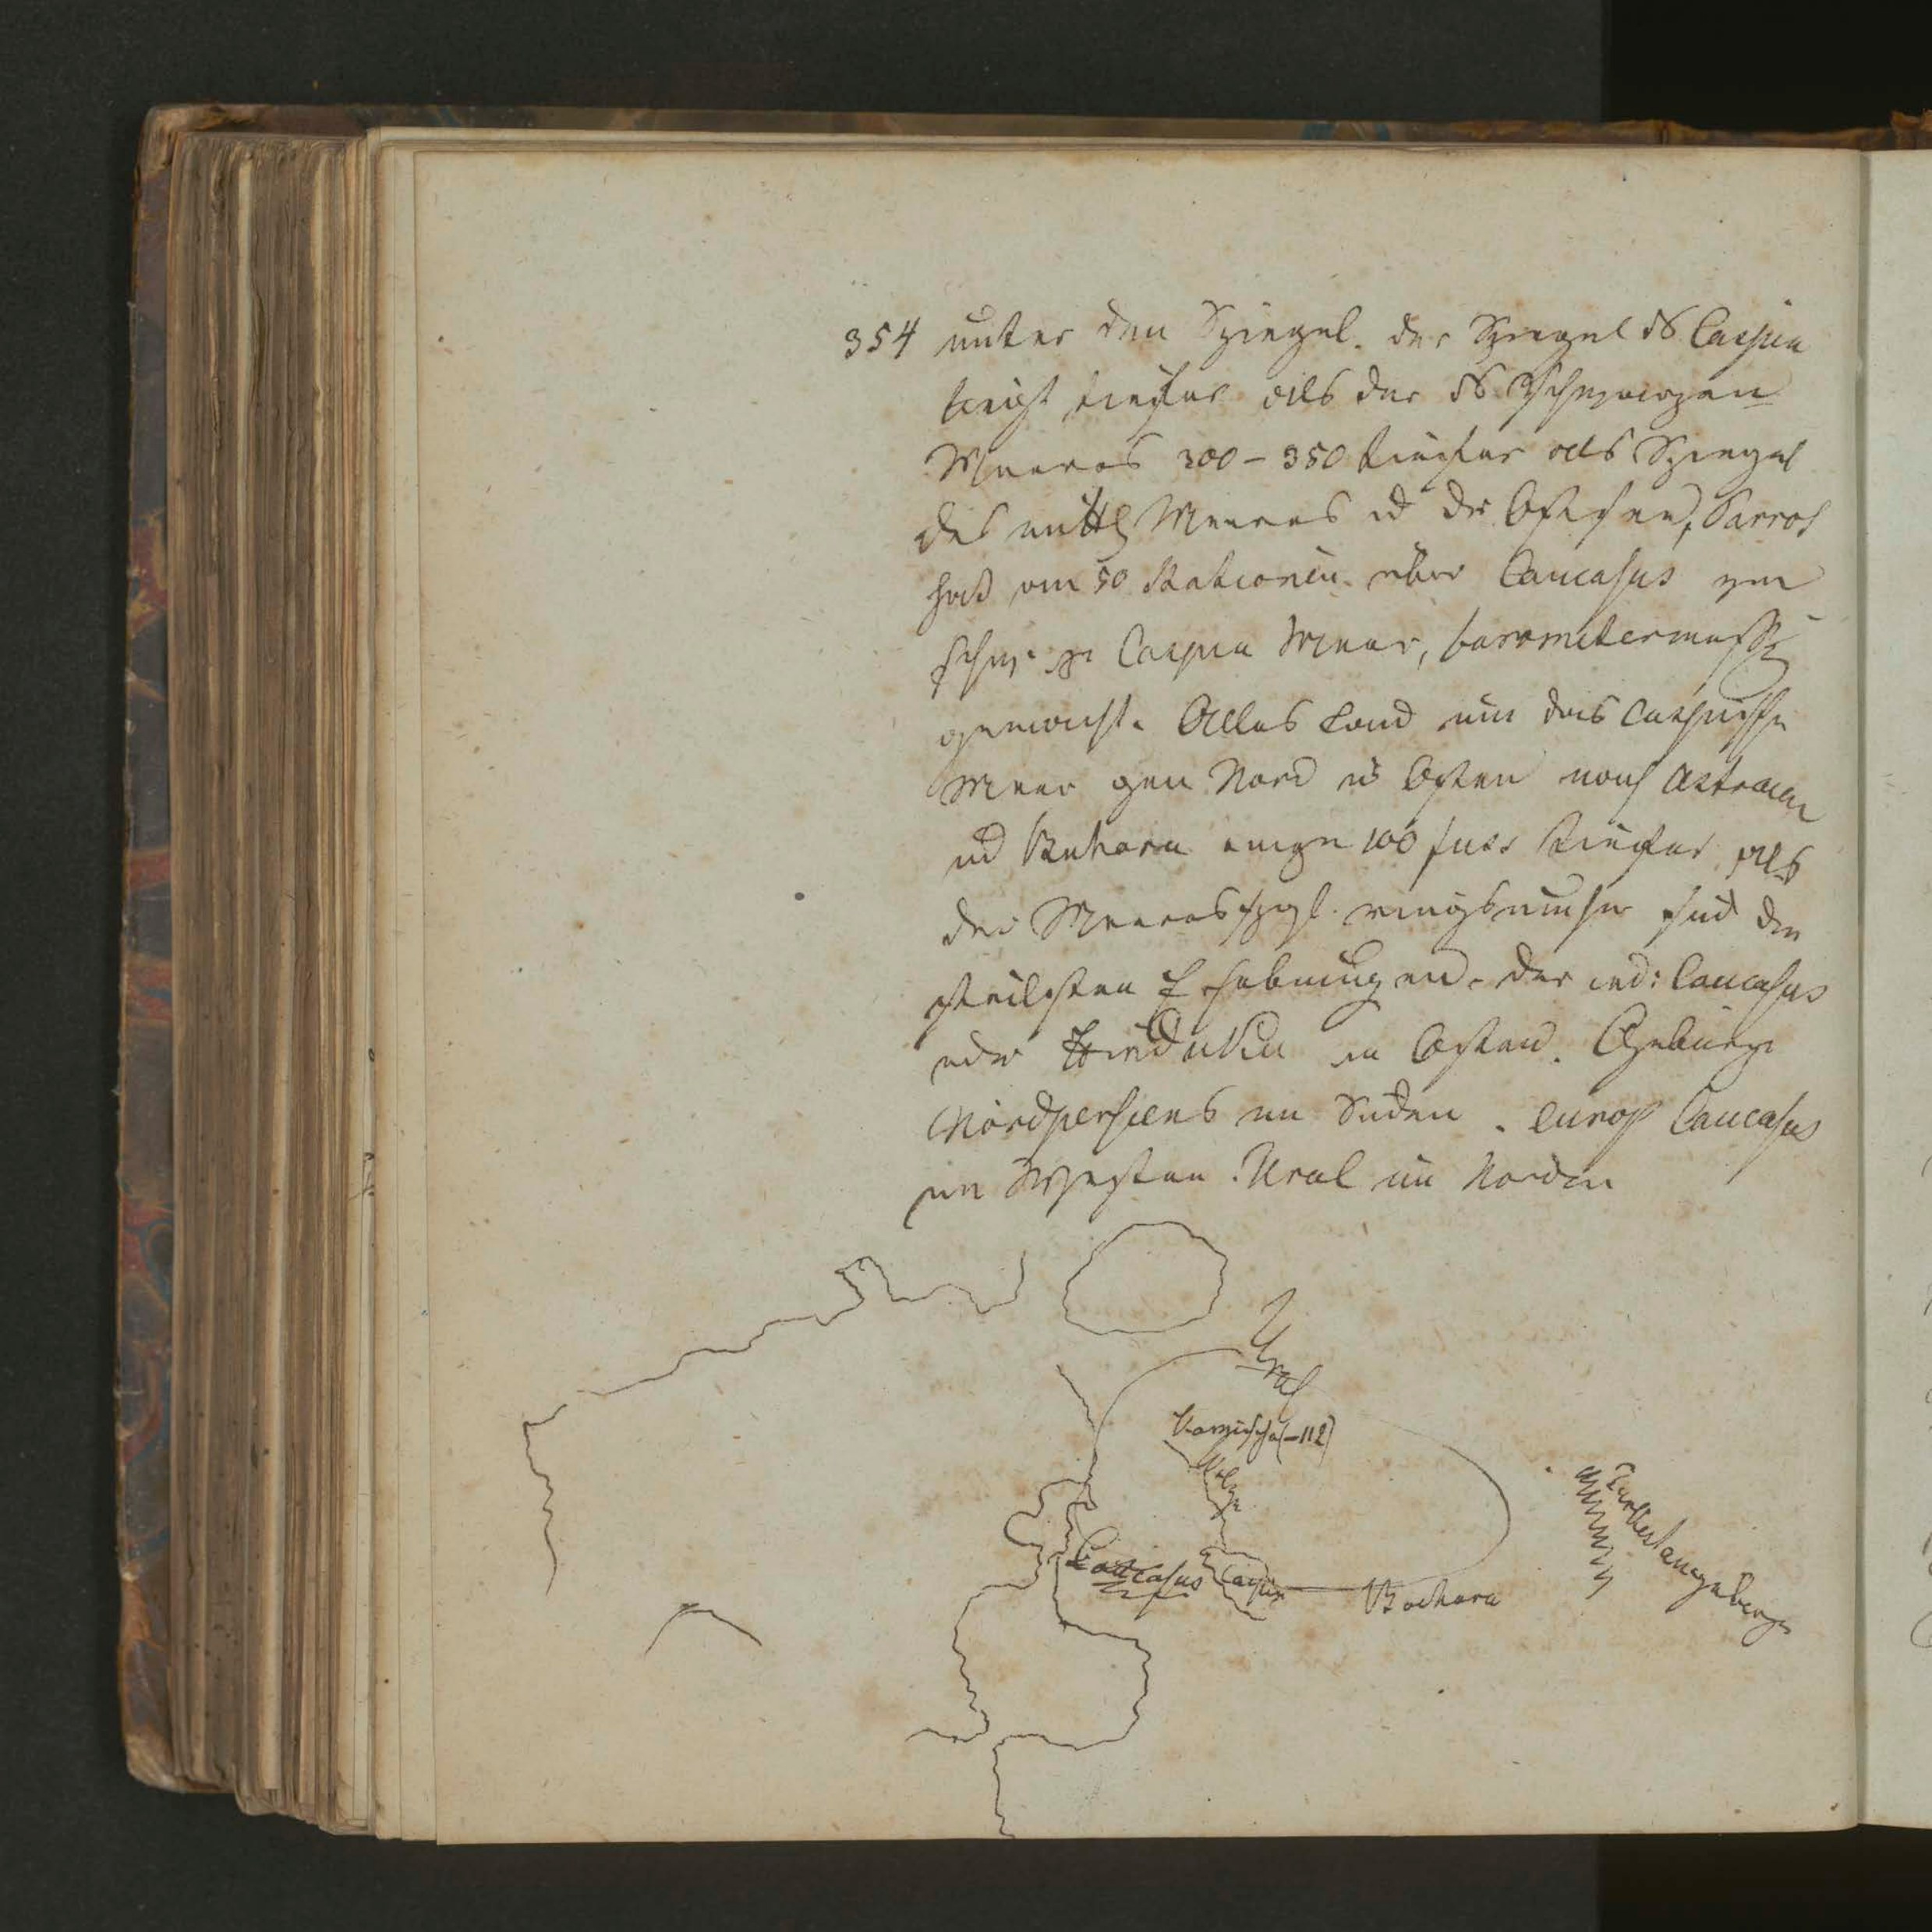 354 unter den Spiegel. der Spiegel ds Caspia
liegt tiefer als der ds Schwarzen
Meeres 300-350 tiefer als Spiegel
des mittl Meeres ud der Ostsee, Parrot
hat an 50 Stationen über Caucasus vom
Schw. zu Caspia Meer, barometermess
gemacht. Alles Land um das caspische
Meer gen Nord u Osten nach Astracan
ud Buhara einige 100 fuss tiefer als
der Meeresspgl. ringsumher sind die
steilsten Erhebungen. der ind: Caucasus
oder Hinduku in Osten. Gebirge
Nordpersiens im Süden. europ Caucasus
im Westen. Ural im Norden
Ural
Kamischa (-112)
Wolga
Caucasus
Caspia
Bochara